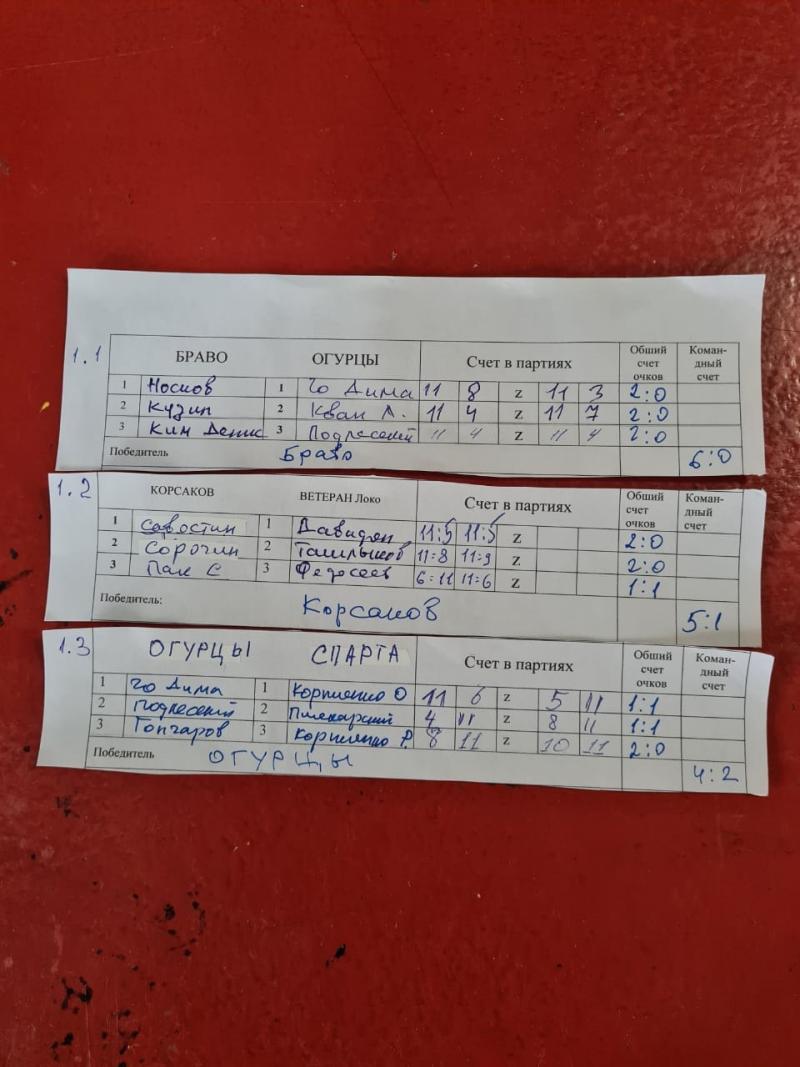 1.1 БРАВО ОГУРЦЫ Счет в партиях Общий счет очков Коман-дный счет
1 Носков 1 Чо Дима 11 8 z 11 3 2:0
2 Кузин 2 Кван А. 11 4 z 11 7 2:0
3 Ким Денис 3 Подлесный 11 4 z 11 4 2:0
Победитель Браво 6:0
1.2 КОРСАКОВ ВЕТЕРАН Локо Счет в партиях Общий счет очков Коман-дный счет
1 Савостин 1 Давиден 11:5 11:5 z 2:0
2 Сорочин 2 11:8 11:9 z 2:0
3 Пак С 3 Федосеев 6:11 11:6 z 1:1
Победитель: Корсаков 5:1
1.3 ОГУРЦЫ СПАРТА Счет в партиях Общий счет очков Коман-дный счет
1 Чо Дима 1 Корниенко О 11 6 z 5 11 1:1
2 Подлесный 2 4 11 z 8 11 1:1
3 Гончаров 3 Корниенко Р. 8 11 z 10 11 2:0
Победитель ОГУРЦЫ 4:2